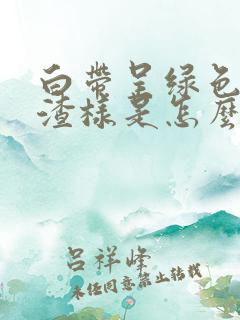 白带呈绿色
渣样是怎么
吕祥峰
未经同意禁止转载